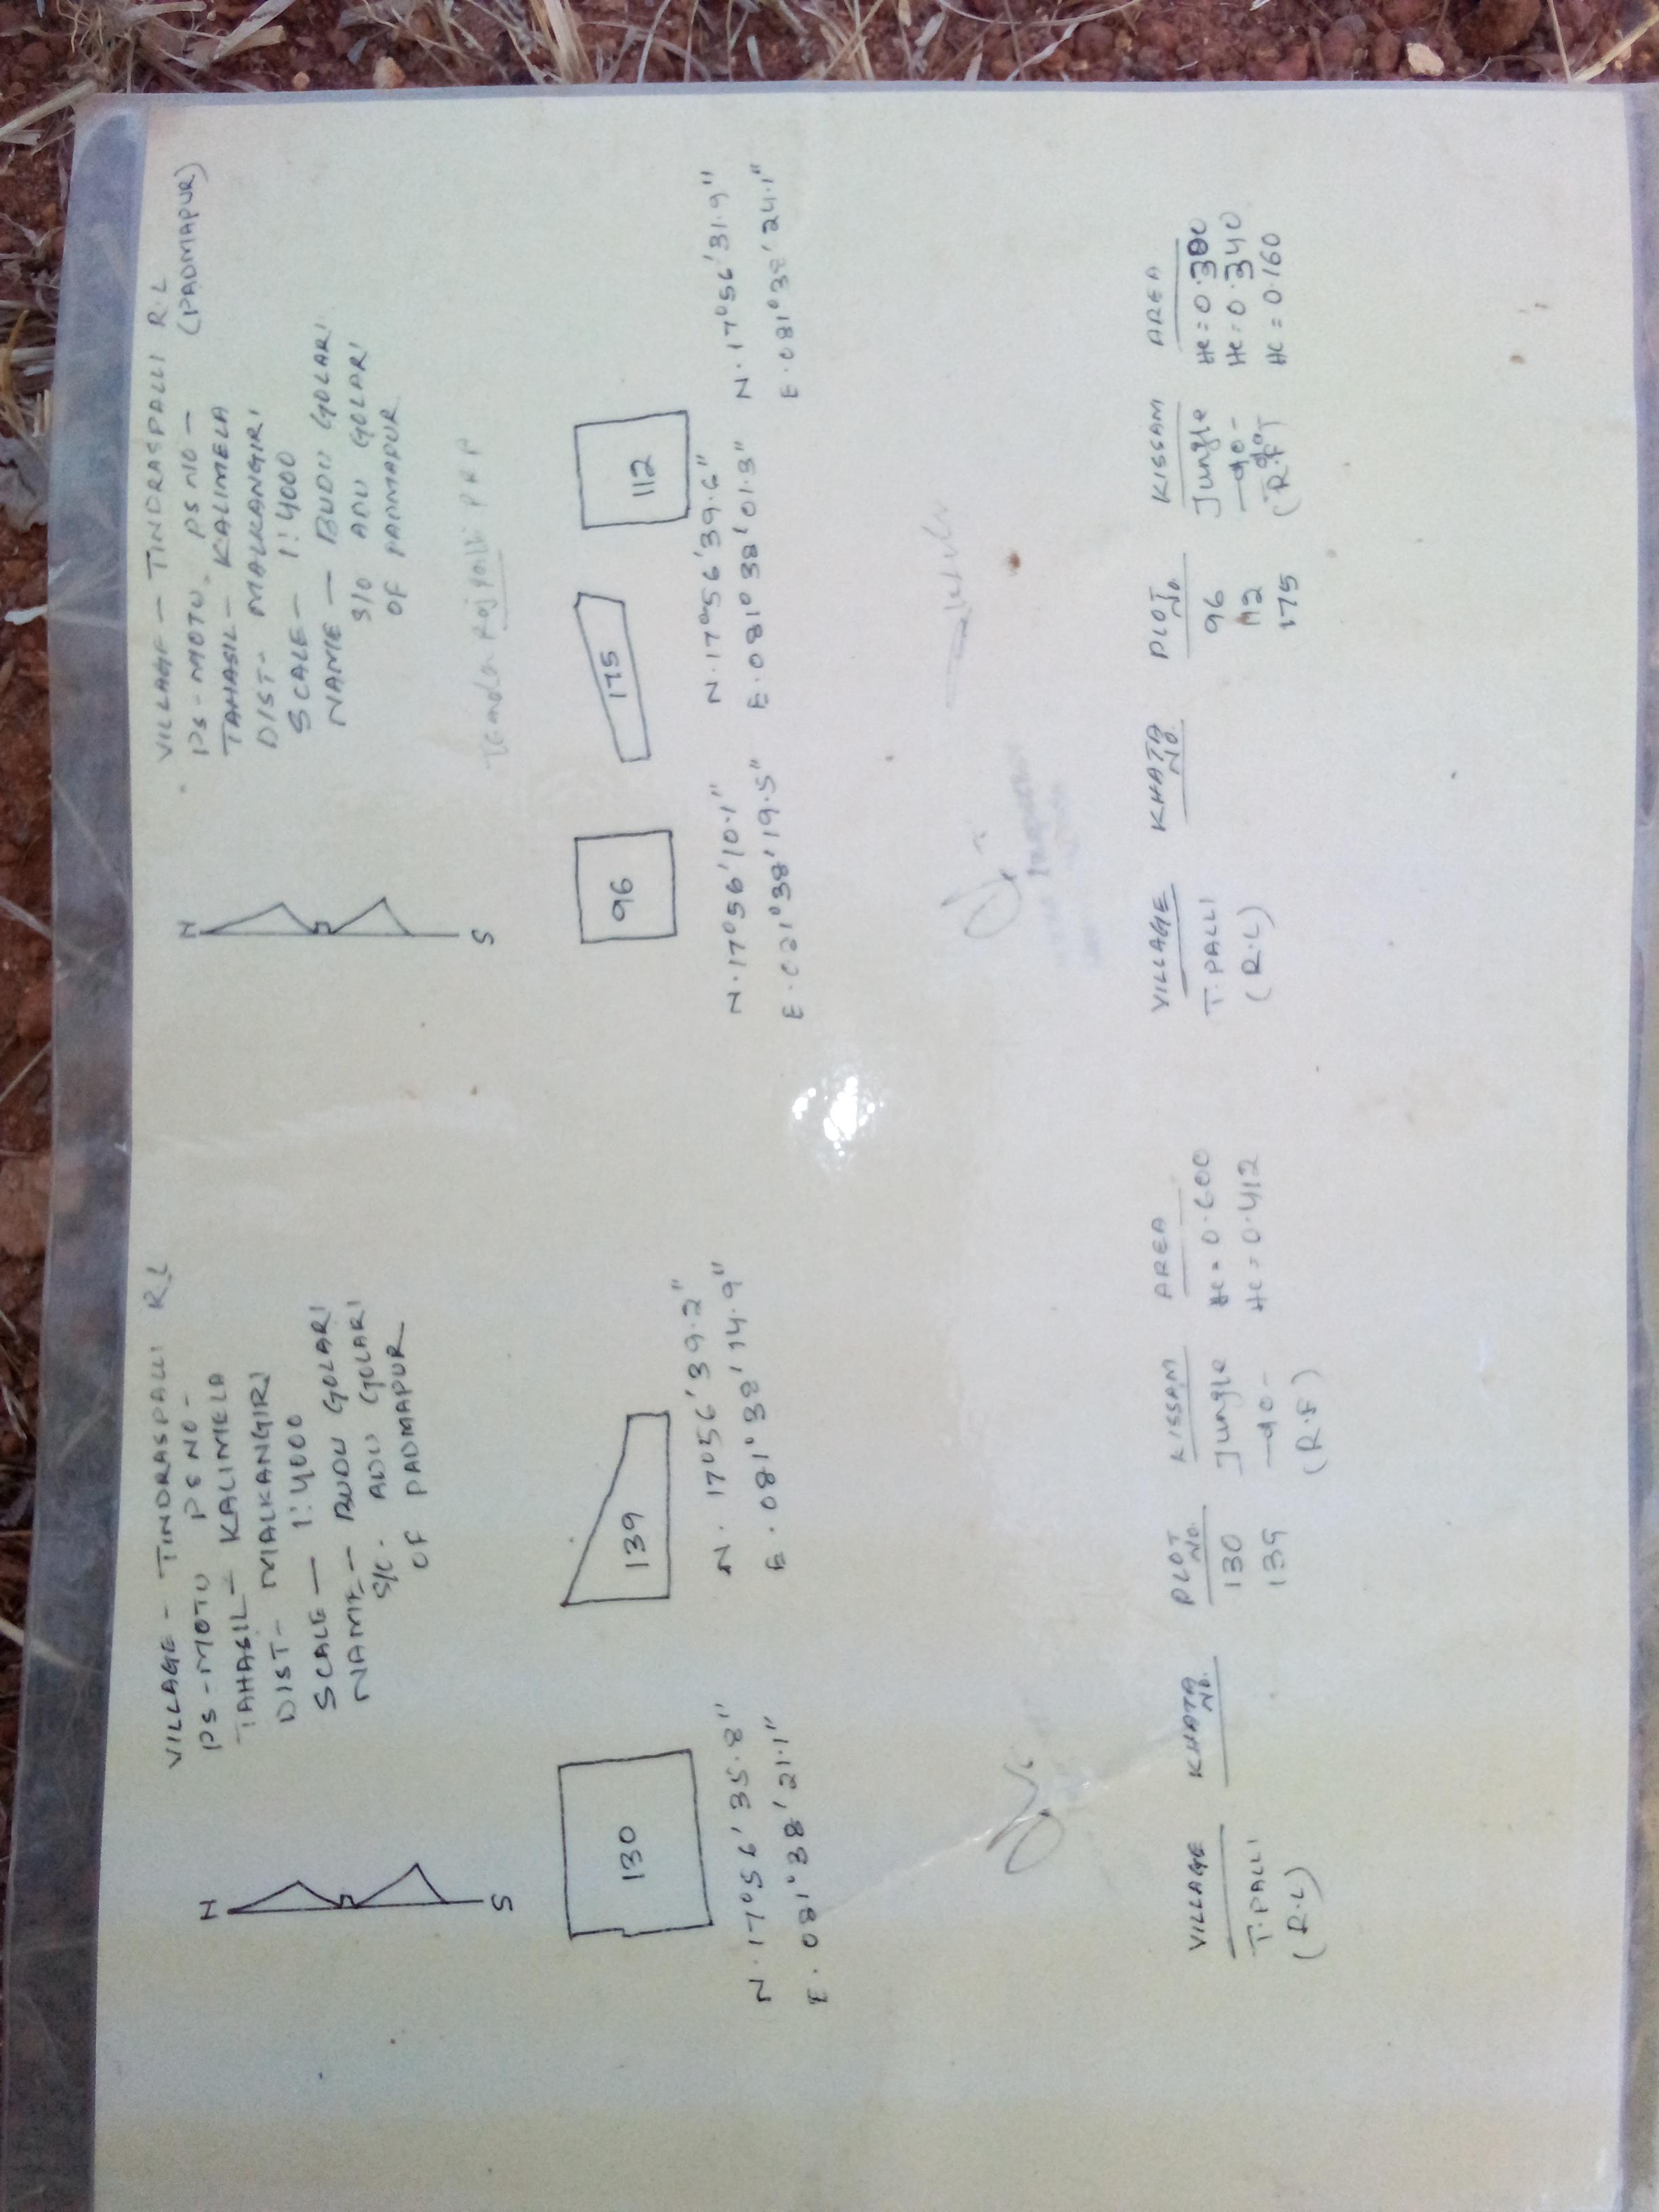 VILLAGE - TINDRASPALLI R.L
PS-MOTU PS NO -
TAHASIL - KALIMELA
DIST- MALKANGIRI
SCALE - 1:4000
NAME - BUDU GOLARI
S/O. ADU GOLARI
OF PADMAPUR
N
S
130
139
N. 17°56'35.8"
E. 081°38'21.1"
N. 17°56'39.2"
E. 081°38'14.9"
VILLAGE KHATA No. PLOT No. KISSAM AREA
T. PALLI 130 Jungle Hc = 0.600
(R.L) 139 -do- Hc = 0.412
(R.F)
VILLAGE - TINDRASPALLI R.L
PS-MOTU. PS NO - (PADMAPUR)
TAHASIL - KALIMELA
DIST- MALKANGIRI
SCALE - 1:4000
NAME - BUDU GOLARI
S/O ADU GOLARI
OF PADMAPUR
N
S
96
175
112
N. 17°56'10.1"
E. 021°38'19.5"
N. 17°56'39.6"
E. 081°38'01.3"
N. 17°56'31.9"
E. 081°38'24.1"
VILLAGE KHATA No. PLOT No. KISSAM AREA
T. PALLI 96 Jungle Hc = 0.380
(R.L) 112 -do- Hc = 0.340
175 -do- Hc = 0.160
(R.F)